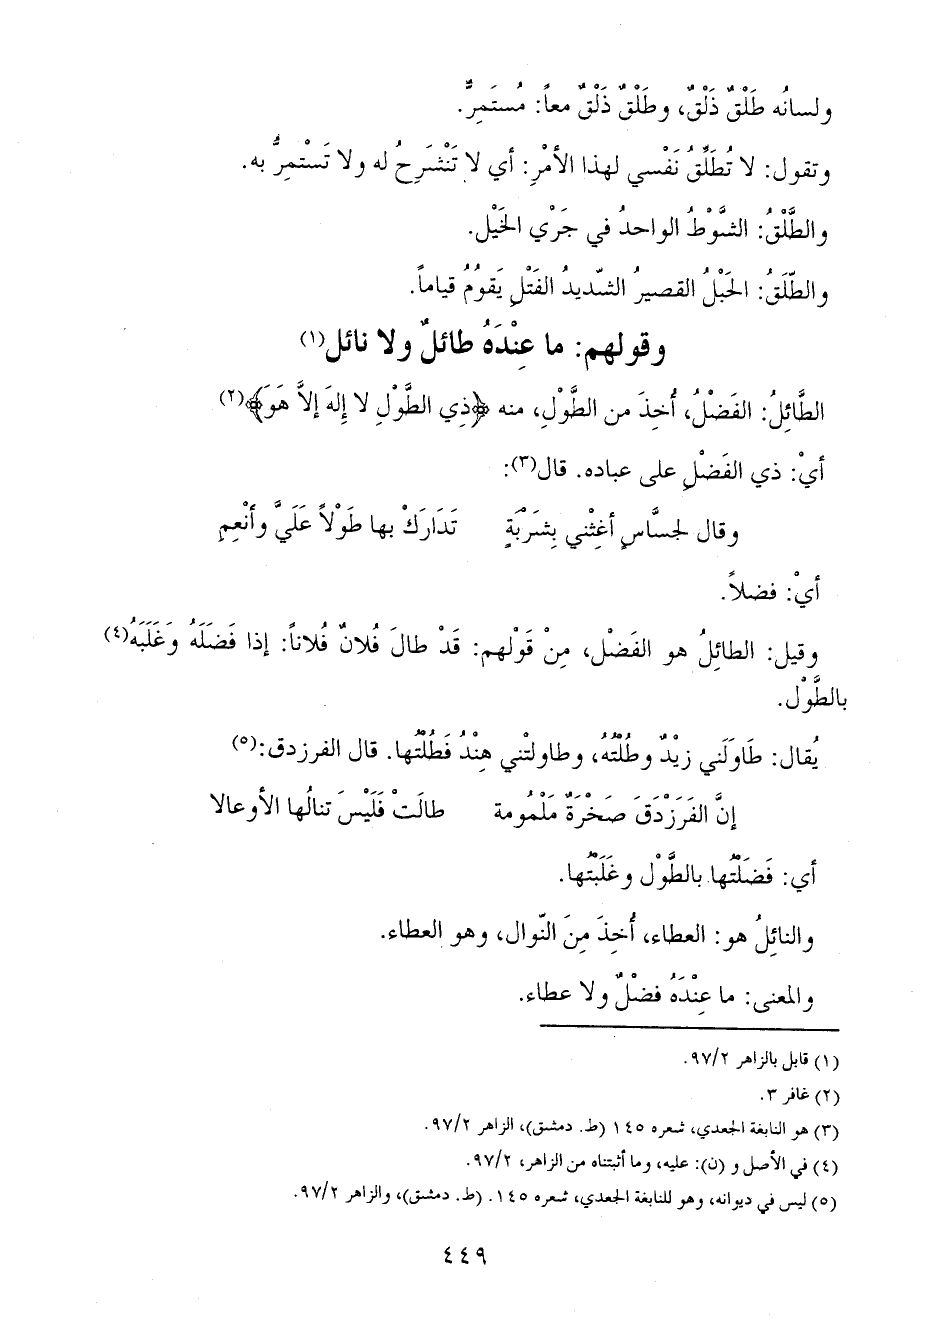 ولسانُه طَلْقٌ ذَلْقٌ، وطَلْقٌ ذَلْقٌ معاً: مُستَمِرٌّ.
وتقول: لا تُطَلَّقُ نَفْسي لهذا الأمْرِ: أي لا تَنْشَرِحُ له ولا تَسْتمِرُّ به.
والطَّلْقُ: الشَّوْطُ الواحدُ في جَرْي الخَيْل.
والطّلَقُ: الحَبْلُ القصيرُ الشّديدُ الفَتْلِ يَقومُ قياماً.
وقولهم: ما عِنْدَهُ طائلٌ ولا نائل(١)
الطَّائِلُ: الفَضْلُ، أُخِذَ من الطَّوْلِ، منه ﴿ذِي الطَّوْلِ لا إِلهَ إلاَّ هَوَ﴾(٢)
أيْ: ذي الفَضْلِ على عباده. قال(٣):
وقال لجسَّاسٍ أغِثْني بِشَرْبَةٍ تَدَارَكْ بها طَوْلاً عَلَيَّ وأنْعِمِ
أيْ: فضلاً.
وقيل: الطائِلُ هو الفَضْل، مِنْ قَوْلهم: قَدْ طالَ فُلانٌ فُلاناً: إذا فَضَلَهُ وَغَلَبَهُ(٤)
بالطَّوْل.
يُقال: طَاوَلَني زيْدٌ وطُلْتُهُ، وطاولتْني هِنْدُ فَطُلْتُها. قال الفرزدق:(٥)
إنَّ الفَرَزْدَقَ صَخْرَةٌ مَلْمُومة طالَتْ فَلَيْسَ تنالُها الأوعالا
أي: فَضَلَتْها بالطَّوْل وغَلَبَتْها.
والنائِلُ هو: العطاء، أُخِذَ مِنَ النّوال، وهو العطاء.
والمعنى: ما عِنْدَهُ فضْلٌ ولا عطاء.
(١) قابل بالزاهر ٩٧/٢.
(٢) غافر ٣.
(٣) هو النابغة الجعدي، شعره ١٤٥ (ط. دمشق)، الزاهر ٩٧/٢.
(٤) في الأصل و (ن): عليه، وما أثبتناه من الزاهر، ٩٧/٢.
(٥) ليس في ديوانه، وهو للنابغة الجعدي، شعره ١٤٥. (ط. دمشق)، والزاهر ٩٧/٢.
٤٤٩